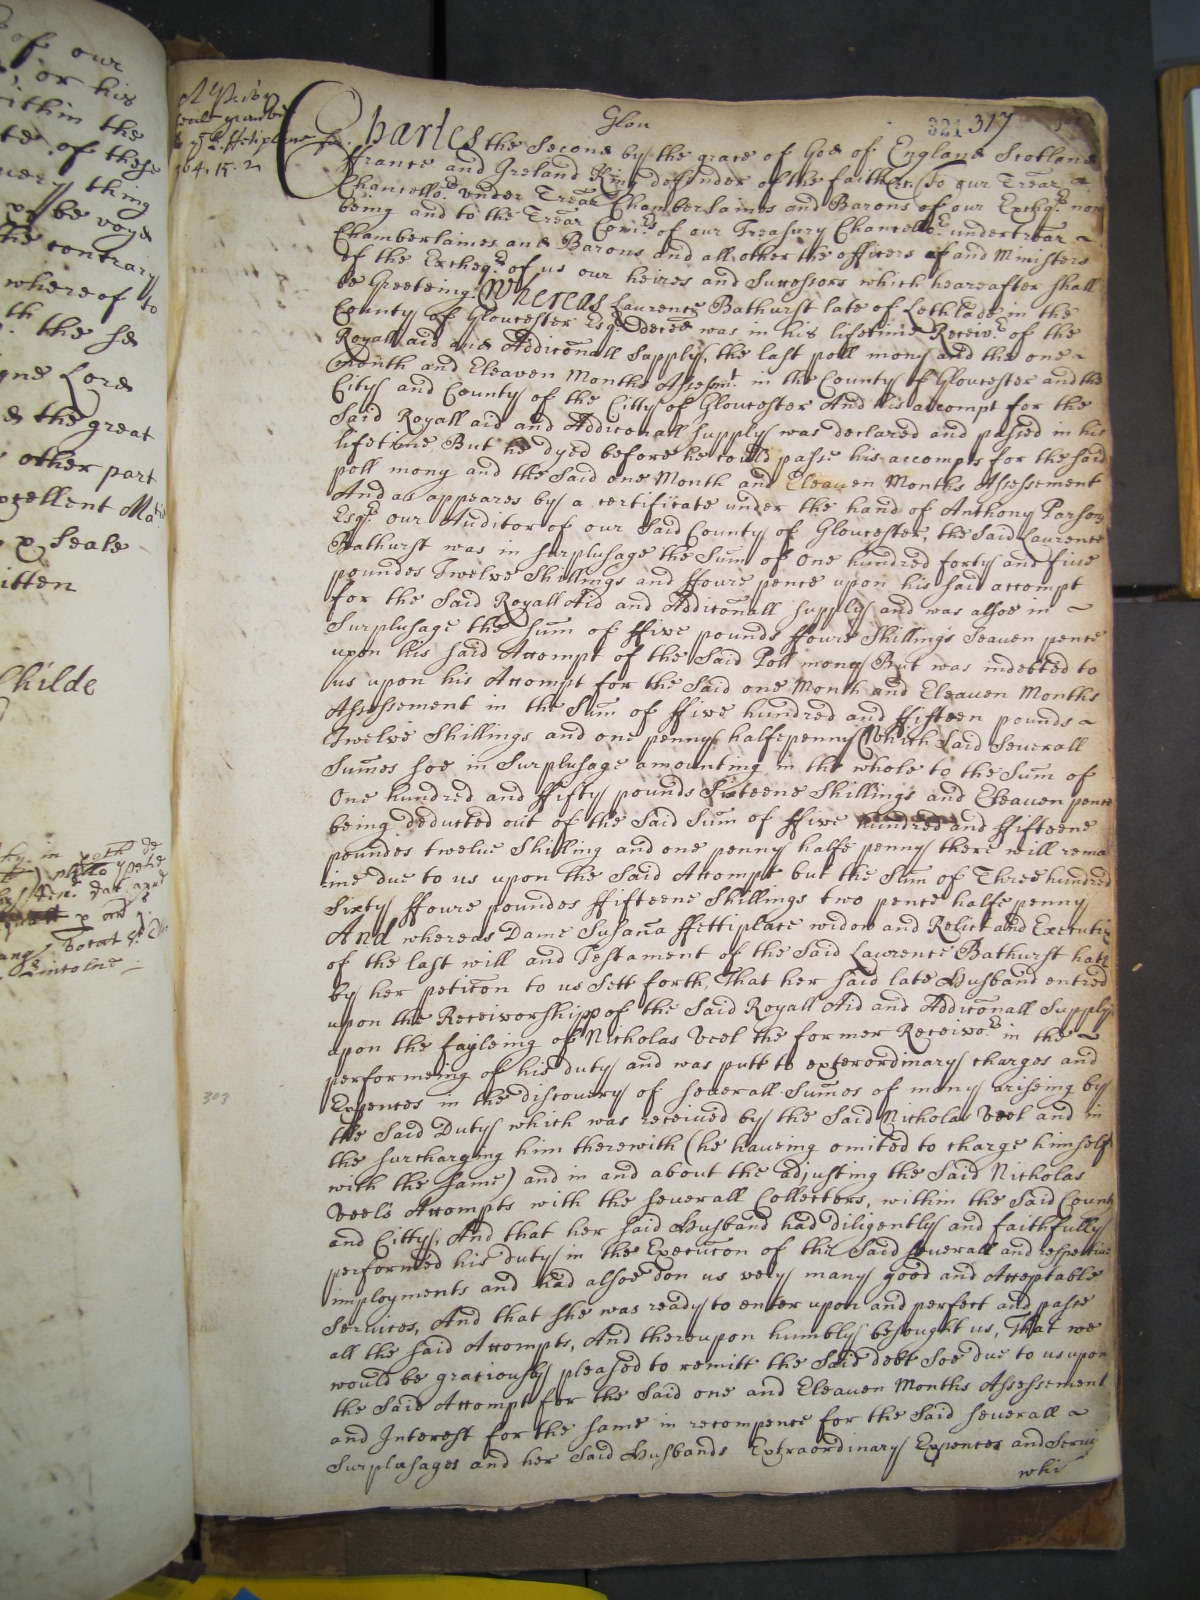 of our
or his
within the
of these
thing
be voyd
the contrary
where of to
the se
Lord
the great
other part
excellent Ma
Seale
itten
Childe
Glou
321 317
A Privy
Seale
364. 15. 2
Charles the Second by the grace of God of England Scotland
ffrance and Ireland King defender of the faith &c To our Trear ~
Chancellor. under Trear Chamberlaines and Barons of our Excheqr. now
being and to the Trear Comrs. of our Treasury Chancellor. undertrear ~
Chamberlaines and Barons and all other the officers of and Ministers
of the Excheqr. of us our heires and Successors which heareafter shall
be Greeteing. Whereas Laurence Bathurst late of Lethlade in the
County of Gloucester Esqr. Deced was in his lifetime Receivr. of the
Royall aid and Addiconall Supply, the last poll mony and the one ~
Month and Eleaven Months Assesmt. in the County of Gloucester and the
City and County of the Citty of Gloucester And his accompt for the
Said Royall aid and Addiconall Supply was declared and passed in his
lifetime But he dyed before he could passe his accompts for the said
poll mony and the Said one Month and Eleaven Months Assessement
And as appeares by a certificate under the hand of Anthony Parsons
Esqr. our Auditor of our Said County of Gloucester, the Said Laurence
Bathurst was in surplusage the Sum of One hundred forty and five
poundes Twelve Shillings and ffoure pence upon his said accompt
for the Said Royall Aid and Addiconall supply and was alsoe in ~
Surplusage the sum of ffive pounds ffoure Shillings Seaven pence
upon his said Accompt of the Said Poll mony But was indebted to
us upon his Accompt for the Said one Month and Eleaven Months
Assessement in the Sum of ffive hundred and ffifteen pounds ~
Twelve Shillings and one penny halfepenny Which Said Severall
Summes soe in Surplusage amounting in the whole to the Sum of
One hundred and ffifty pounds Sixteene Shillings and Eleaven pence
being deducted out of the Said Sum of ffive hundred and ffifteene
poundes twelve Shilling and one penny halfe penny there will rema
ine due to us upon the Said Accompt but the Sum of Three hundred
Sixty ffoure poundes ffifteene Shillings two pence halfe penny
And whereas Dame Susana ffettiplace widow and Relict and Executrix
of the last will and Testament of the Said Laurence Bathurst hath
by her peticon to us Sett forth, That her said late Husband entred
upon the Receivorshipp of the Said Royall Aid and Addiconall Supply
upon the fayleing of Nicholas Veel the former Receivor. in the ~
performeing of his duty and was putt to exterordinary charges and
Expences in the discovery of severall Summes of mony ariseing by
the Said Duty which was received by the Said Nicholas Veel and in
the surcharging him therewith (he haveing omitted to charge himself
with the same) and in and about the adjusting the Said Nicholas
Veel's Accompts with the severall Collectors, within the Said County
and Citty, And that her said Husband had diligently and faithfully
performed his duty in the Execucon of the Said severall and respective
imployments and had alsoe don us very many good and Acceptable
Services, And that She was ready to enter upon and perfect and passe
all the said Accompts, And thereupon humbly besought us, That we
would be graciously pleased to remitt the Said debt Soe due to us upon
the Said Accompt for the Said one and Eleaven Months Assessement
and Interest for the same in recompence for the Said severall ~
Surplusages and her Said Husbands Extraordinary Expences and Servi
whi
303